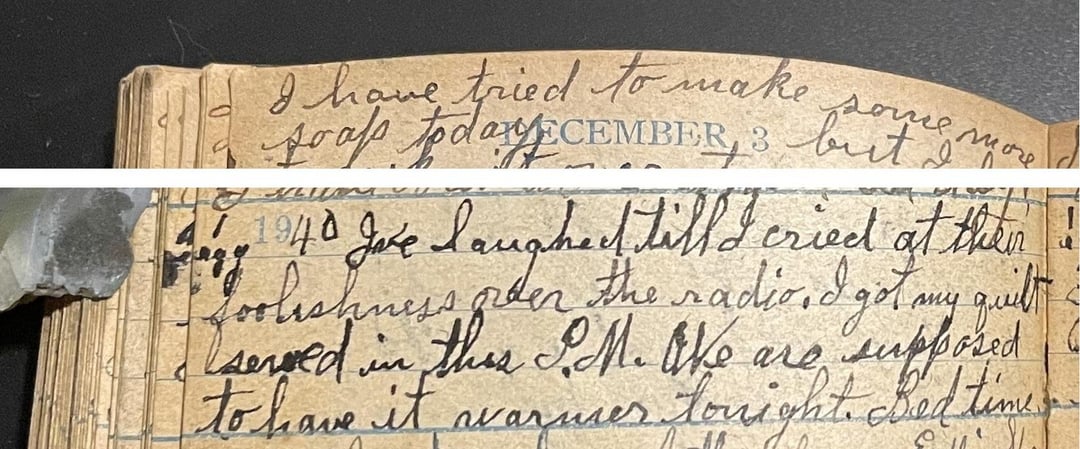 I have tried to make some more
soap today DECEMBER 3 but I
1940 I've laughed till I cried at their
foolishness over the radio. I got my quilt
sewed in this P.M. We are supposed
to have it warmer tonight. Bed time.